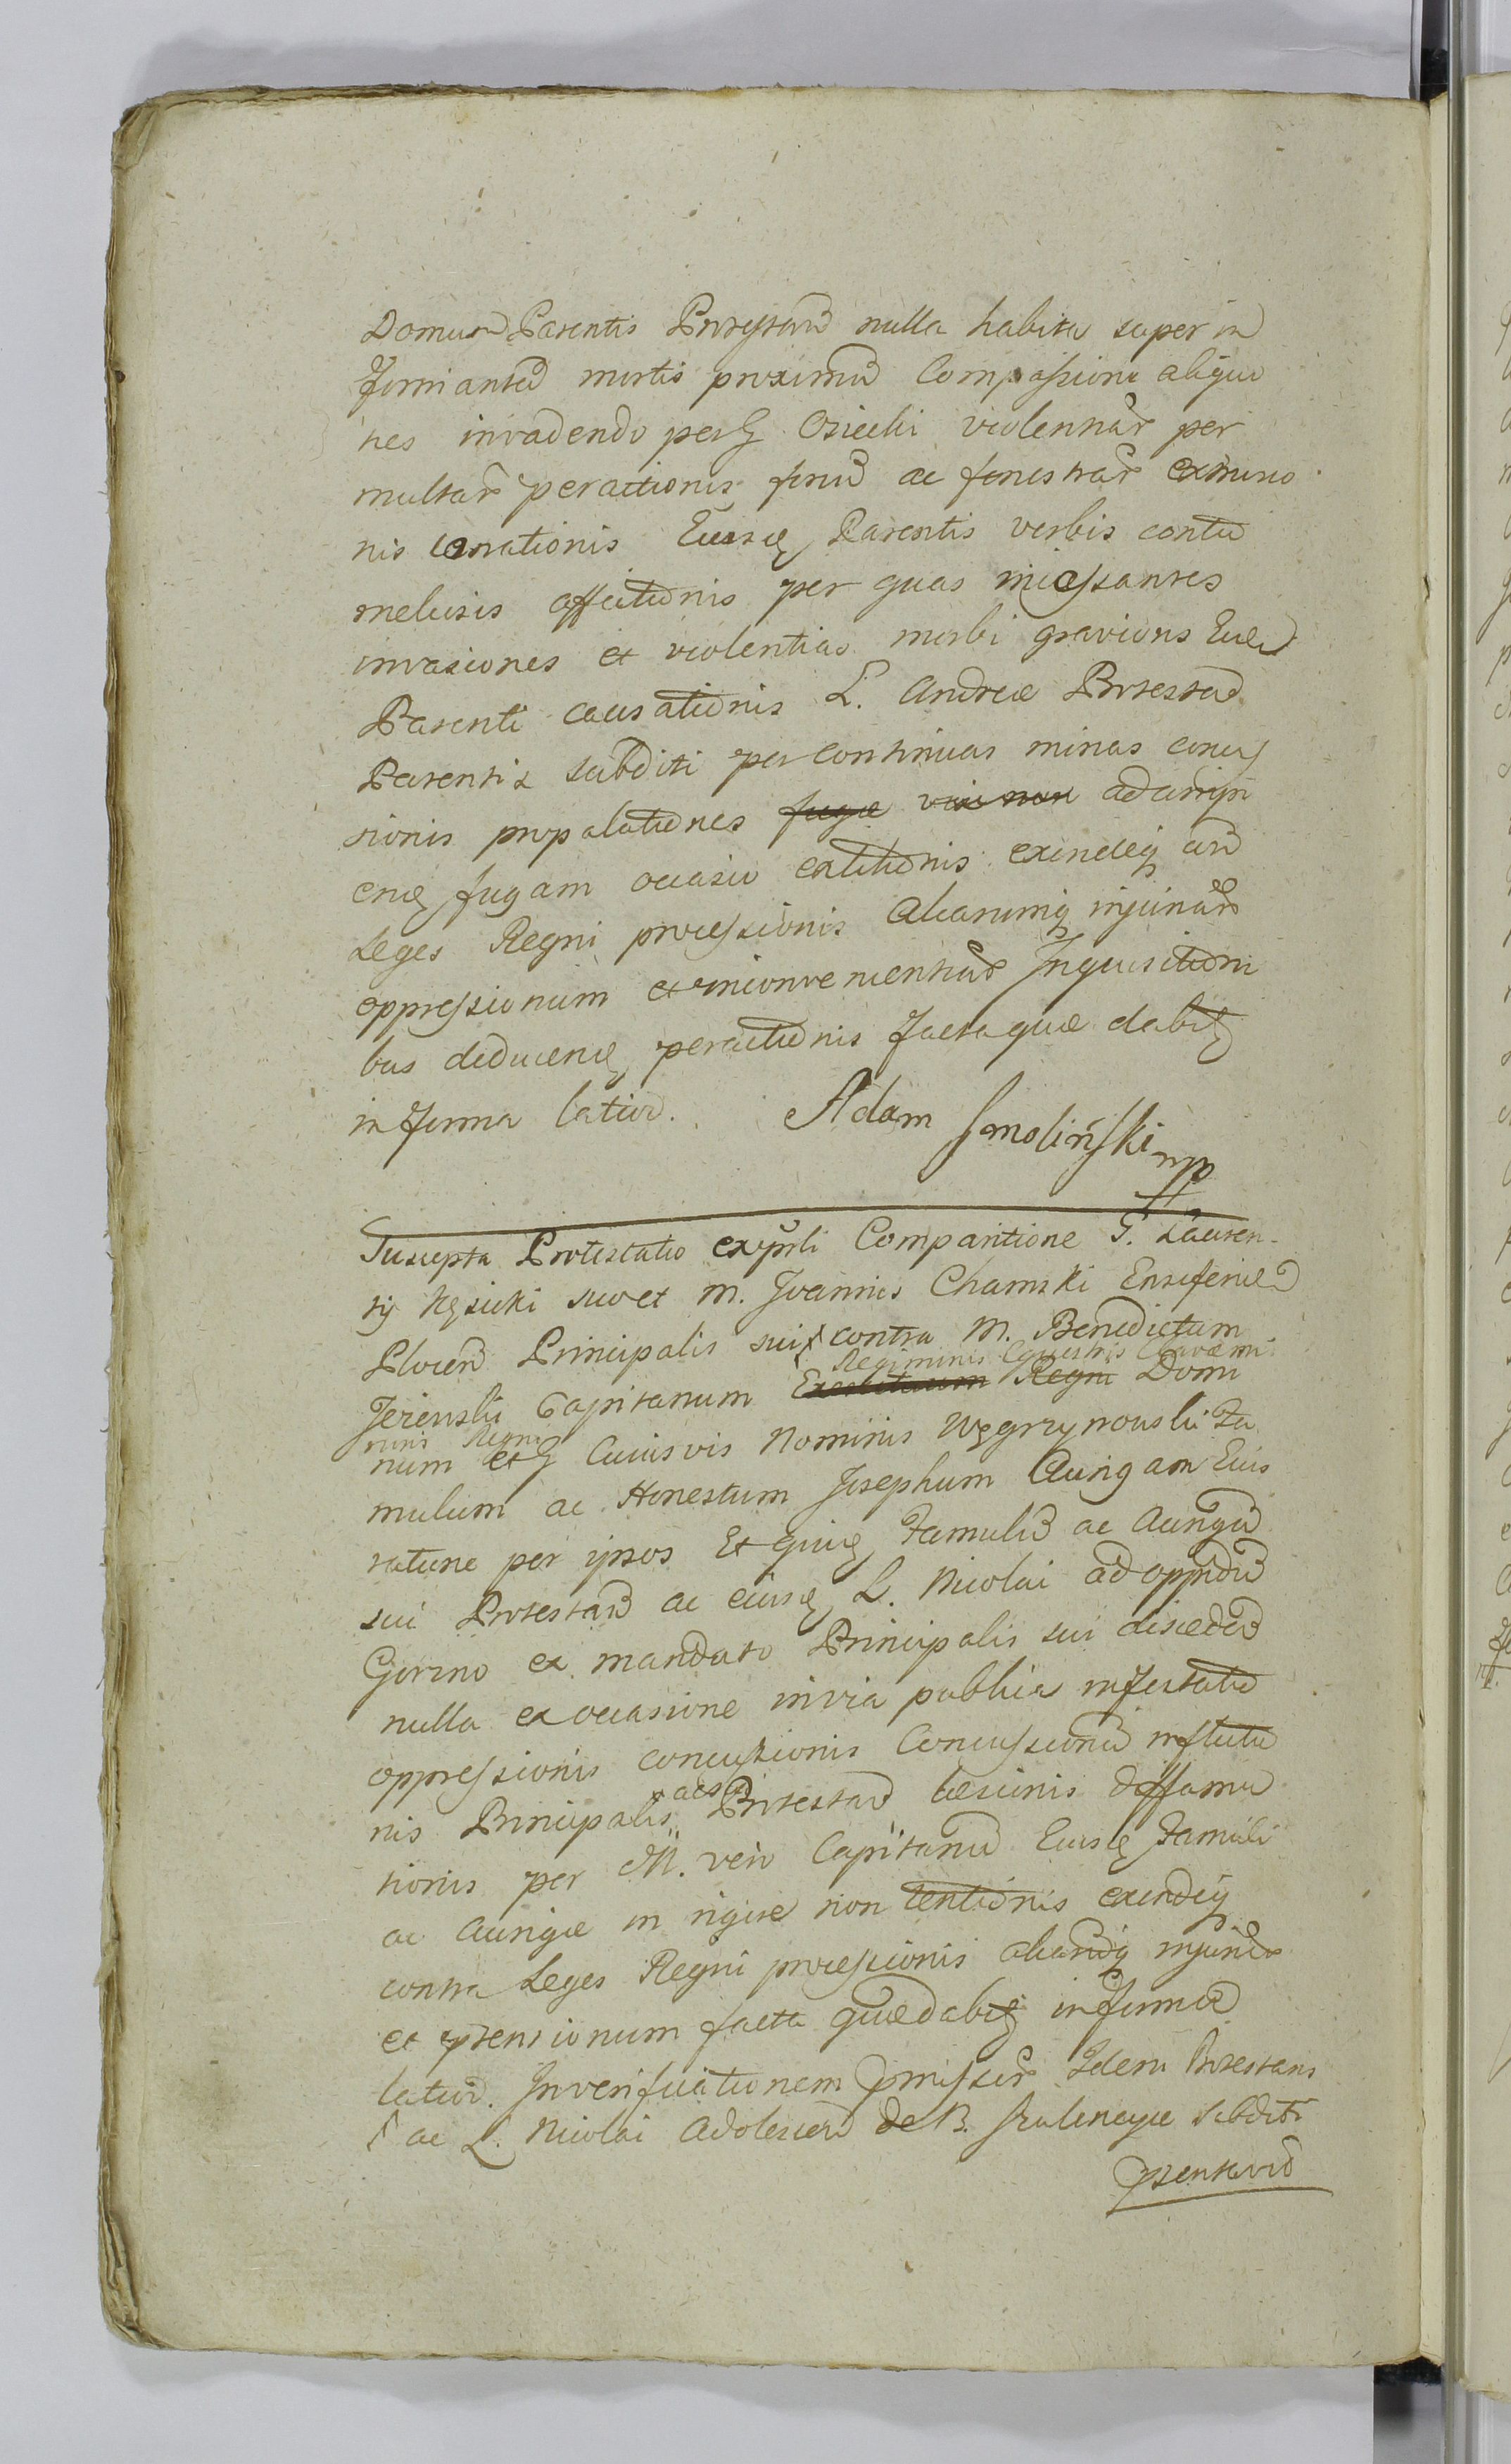 Domum Parentis Protestan nulla habita super in
firmantem mortis proximum Compassione aliquo
ties invadendo per G Osiecki violentiar per
multar peractionis ac fenestrar exmino
nis Eiusd Parentis verbis contu
meliosis affectionis per quas incessantes
invasiones et violentias morbi gravioris Eid
Parenti causationis L. Andreæ Protestan
Parentis subditi per continuas minas concus
sionis propalationes fugæ adarripi
end fugam occasio extitionis exindeq con
Leges Regni processionis aliarumq injuriar
oppressionum et inconvenientiar Inquisitioni
bus deducend peractionis facta quæ dabit
in forma latior. Adam Smoliński mp
Suscepta Protestatio exprli Comparitione G. Lauren-
tij suo et M. Joannis Chamski Ensiferid
Plocen Principalis sui contra M. Benedictum
Regiminis Equestris
Jezierski Capitanum Exercituum Regni Domi
num et G Cuiusvis Nominis Węgrzynowski Fa
mulum ac Honestum Josephum Aurigam Eius
ratione per ipsos Et quid Famulum ac Aurigam
sui Protestan ac eiusd L. Nicolai ad oppidum
Gorzno ex mandato Principalis sui disceden
nulla ex occasione in via publica infestatio
oppressionis concussionis Concussionum
nis Principalis ac sui Protestan læsionis diffama
tionis per M. vero Capitanum Eiusd Famuli
ac Aurigæ in rigore non tentionis exindeq
contra Leges Regni processionis aliarumq injuriar
et ptensionum facta quæ dabit in forma
latior. In verificationem pmissor Idem Protestans
ac L. Nicolai Adolescen de B. subditi
psentavit